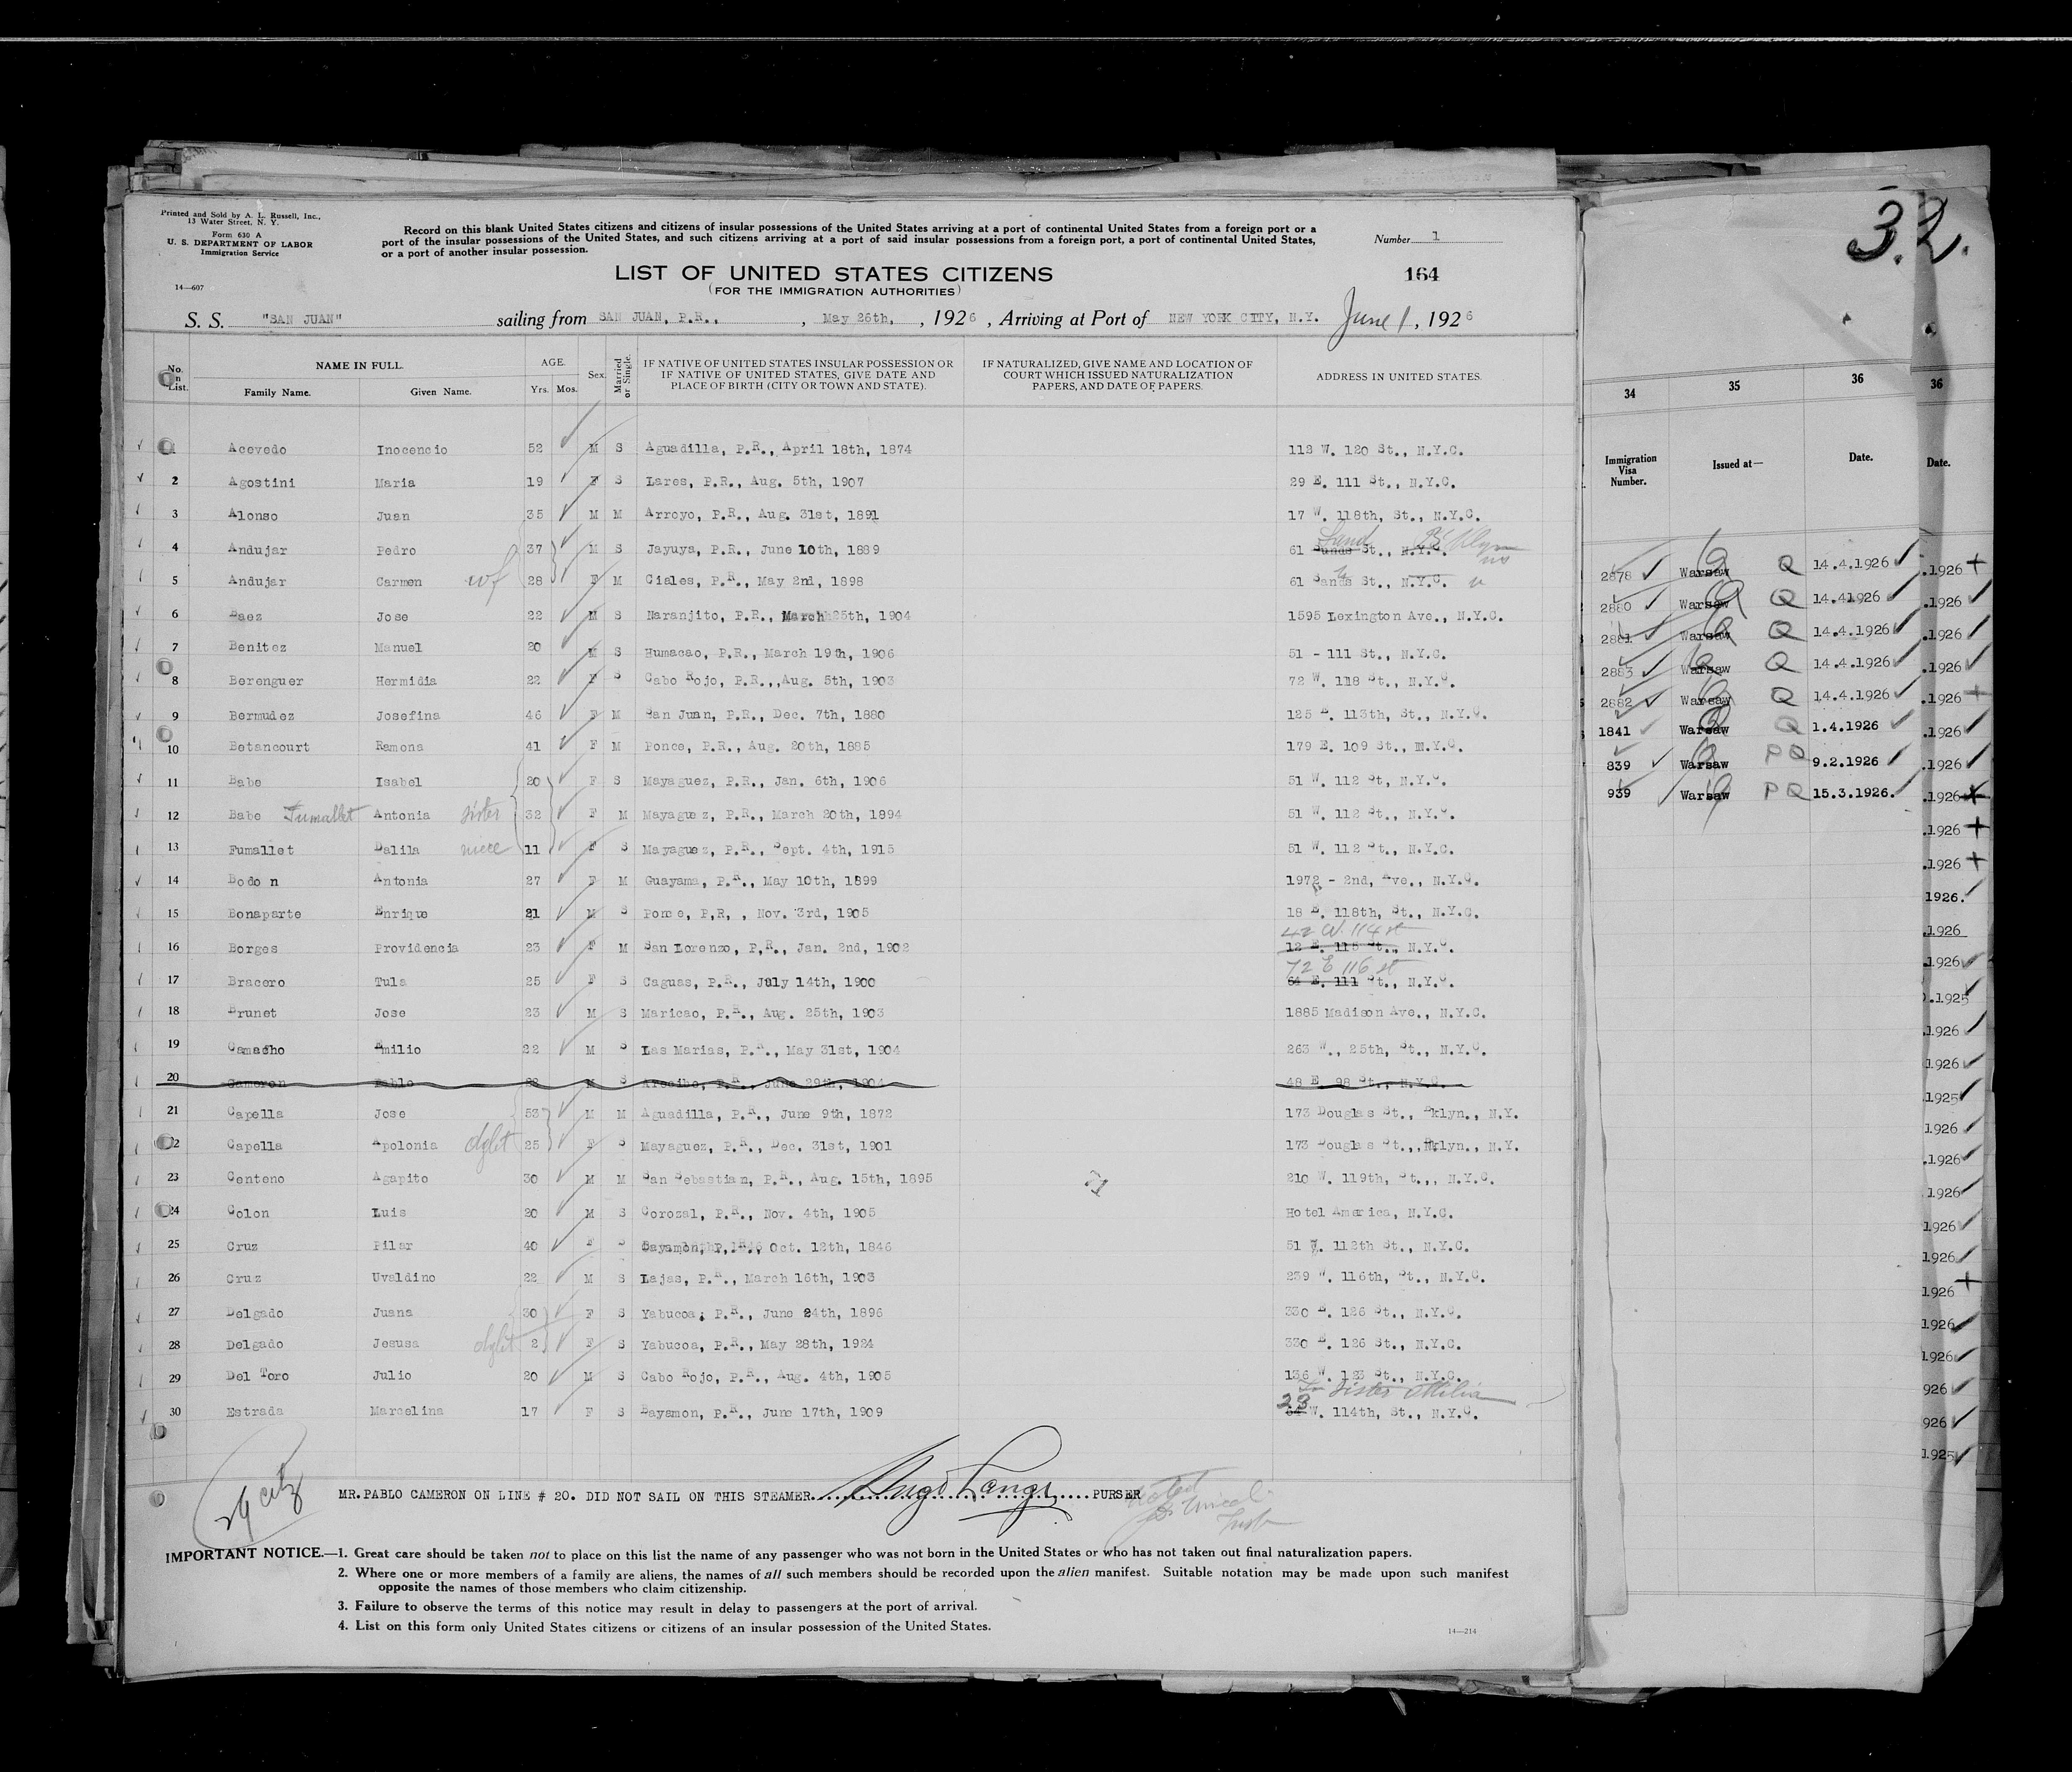 Printed and Sold by A. L. Russell, Inc.,
13 Water Street, N. Y.
Form 630 A
U. S. DEPARTMENT OF LABOR
Immigration Service
14—607
Record on this blank United States citizens and citizens of insular possessions of the United States arriving at a port of continental United States from a foreign port or a
port of the insular possessions of the United States, and such citizens arriving at a port of said insular possessions from a foreign port, a port of continental United States,
or a port of another insular possession.
Number 1
LIST OF UNITED STATES CITIZENS
(FOR THE IMMIGRATION AUTHORITIES)
164
S. S. "SAN JUAN" sailing from SAN JUAN, P.R., , May 26th, , 1926 , Arriving at Port of NEW YORK CITY, N.Y. June 1, 1926
No. on List. NAME IN FULL. Family Name. Given Name. AGE. Yrs. Mos. Sex. Married or Single. IF NATIVE OF UNITED STATES INSULAR POSSESSION OR IF NATIVE OF UNITED STATES, GIVE DATE AND PLACE OF BIRTH (CITY OR TOWN AND STATE). IF NATURALIZED, GIVE NAME AND LOCATION OF COURT WHICH ISSUED NATURALIZATION PAPERS, AND DATE OF PAPERS. ADDRESS IN UNITED STATES.
1 Acevedo Inocencio 52 M S Aguadilla, P.R., April 18th, 1874 113 W. 120 St., N.Y.C.
2 Agostini Maria 19 F S Lares, P.R., Aug. 5th, 1907 29 E. 111 St., N.Y.C.
3 Alonso Juan 35 M M Arroyo, P.R., Aug. 31st, 1891 17 W. 118th, St., N.Y.C.
4 Andujar Pedro 37 M S Jayuya, P.R., June 10th, 1889 61 Sand St., N.Y.C. Bklyn
5 Andujar Carmen wf 28 F M Ciales, P.R., May 2nd, 1898 61 Sands St., N.Y.C.
6 Baez Jose 22 M S Naranjito, P.R., March 25th, 1904 1595 Lexington Ave., N.Y.C.
7 Benitez Manuel 20 M S Humacao, P.R., March 19th, 1906 51 - 111 St., N.Y.C.
8 Berenguer Hermidia 22 F S Cabo Rojo, P.R.,,Aug. 5th, 1903 72 W. 118 St., N.Y.C.
9 Bermudez Josefina 46 F M San Juan, P.R., Dec. 7th, 1880 125 E. 113th, St., N.Y.C.
10 Betancourt Ramona 41 F M Ponce, P.R., Aug. 20th, 1885 179 E. 109 St., N.Y.C.
11 Babe Isabel 20 F S Mayaguez, P.R., Jan. 6th, 1906 51 W. 112 St, N.Y.C.
12 Babe Fumallet Antonia sister 32 F M Mayaguez, P.R., March 20th, 1894 51 W. 112 St., N.Y.C.
13 Fumallet Dalila niece 11 F S Mayaguez, P.R., Sept. 4th, 1915 51 W. 112 St., N.Y.C.
14 Bodon Antonia 27 F M Guayama, P.R., May 10th, 1899 1972 - 2nd, Ave., N.Y.C.
15 Bonaparte Enrique 21 M S Ponce, P.R, , Nov. 3rd, 1905 18 E. 118th, St., N.Y.C.
42 W. 114 st
16 Borges Providencia 23 F M San Lorenzo, P.R., Jan. 2nd, 1902 12 E. 115 St., N.Y.C.
72 E 116 st
17 Bracero Tula 25 F S Caguas, P.R., July 14th, 1900 64 E. 111 St., N.Y.C.
18 Brunet Jose 23 M S Maricao, P.R., Aug. 25th, 1903 1885 Madison Ave., N.Y.C.
19 Camacho Emilio 22 M S Las Marias, P.R., May 31st, 1904 263 W., 25th, St., N.Y.C.
20 Cameron Pablo M S Arecibo, P.R., June 29th, 1904 48 E 98 St., N.Y.C.
21 Capella Jose 53 M M Aguadilla, P.R., June 9th, 1872 173 Douglas St., Bklyn., N.Y.
22 Capella Apolonia dght 25 F S Mayaguez, P.R., Dec. 31st, 1901 173 Douglas St.,,Bklyn., N.Y.
23 Centeno Agapito 30 M M San Sebastian, P.R., Aug. 15th, 1895 210 W. 119th, St.,, N.Y.C.
24 Colon Luis 20 M S Corozal, P.R., Nov. 4th, 1905 Hotel America, N.Y.C.
25 Cruz Pilar 40 F S Bayamon, P.R., Oct. 12th, 1846 51 W. 112th St., N.Y.C.
26 Cruz Uvaldino 22 M S Lajas, P.R., March 16th, 1903 239 W. 116th, St., N.Y.C.
27 Delgado Juana 30 F S Yabucoa, P.R., June 24th, 1896 330 E. 126 St., N.Y.C.
28 Delgado Jesusa dght 2 F S Yabucoa, P.R., May 28th, 1924 330 E. 126 St., N.Y.C.
29 Del Toro Julio 20 M S Cabo Rojo, P.R., Aug. 4th, 1905 136 W. 123 St., N.Y.C.
To sister Otilia
30 Estrada Marcelina 17 F S Bayamon, P.R., June 17th, 1909 23 W. 114th, St., N.Y.C.
29 citz
MR.PABLO CAMERON ON LINE # 20. DID NOT SAIL ON THIS STEAMER. Hugo Lange PURSER
IMPORTANT NOTICE.—1. Great care should be taken not to place on this list the name of any passenger who was not born in the United States or who has not taken out final naturalization papers.
2. Where one or more members of a family are aliens, the names of all such members should be recorded upon the alien manifest. Suitable notation may be made upon such manifest
opposite the names of those members who claim citizenship.
3. Failure to observe the terms of this notice may result in delay to passengers at the port of arrival.
4. List on this form only United States citizens or citizens of an insular possession of the United States.
14—214
32.
34 35 36 36
Immigration Visa Number. Issued at— Date. Date.
2878 Warsaw Q 14.4.1926 .1926
2880 Warsaw Q 14.41926 .1926
2881 Warsaw Q 14.4.1926 .1926
2883 Warsaw Q 14.4.1926 .1926
2882 Warsaw Q 14.4.1926 .1926
1841 Warsaw Q 1.4.1926 .1926
839 Warsaw PQ 9.2.1926 .1926
939 Warsaw PQ 15.3.1926. .1926
.1926
.1926
1926.
.1926
.1926
.1925
.1926
.1926
.1925
.1926
.1926
.1926
.1926
.1926
1926
1926
.1926
926
926
1925